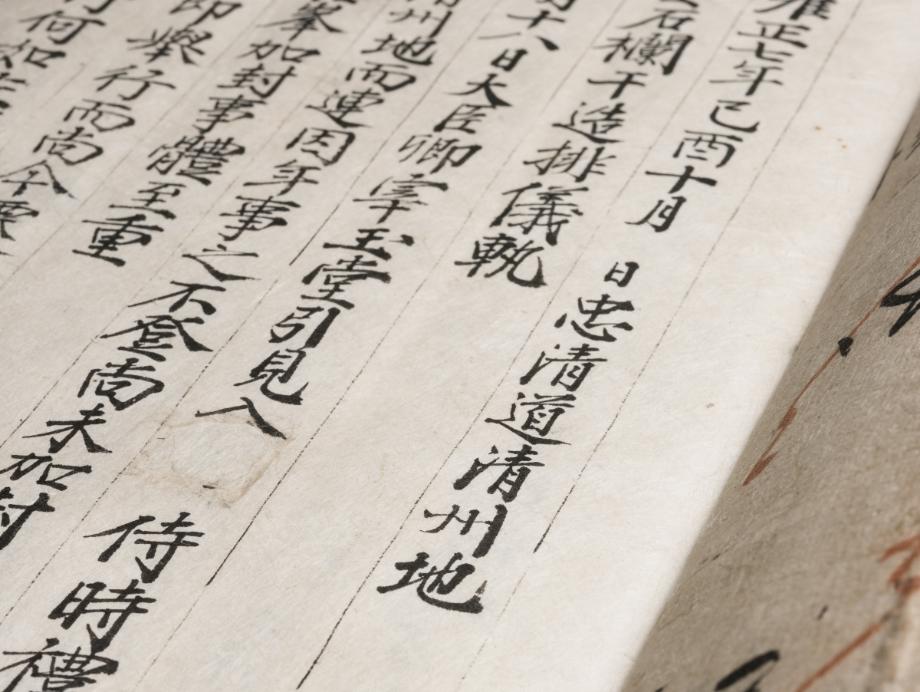 雍正七年己酉十月 日忠清道清州地
石欄干造排儀軌
月十六日大臣卿宰玉堂引見入
清州地而連因年事之不登尚未加封
峯加封事體至重
即擧行而尚今
何如
侍
時
禮